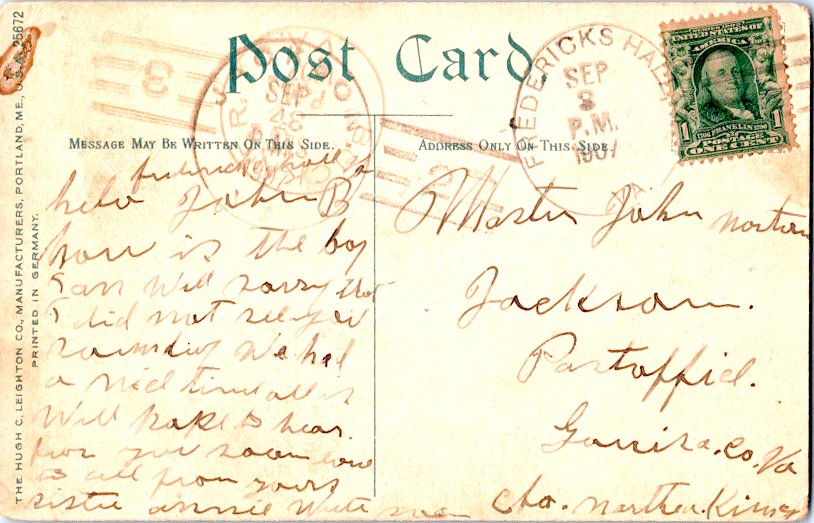 Post Card.
MESSAGE MAY BE WRITTEN ON THIS SIDE.
ADDRESS ONLY ON THIS SIDE.
THE HUGH C. LEIGHTON CO., MANUFACTURERS, PORTLAND, ME., U.S.A. 25672
PRINTED IN GERMANY.
FREDERICKS HALL
SEP
3
P.M.
1907
SERIES 1902
UNITED STATES OF
AMERICA
1 FRANKLIN 1
POSTAGE
ONE CENT
SEP
3
2
helo John B
how is the boy
I am Will sorry that
I did not see you
sounday We had
a nice time all is
Will hope to hear
from you soon love
to all from yours
sister annie Write soon
Master John
Jackson.
Postoffice.
Co. Va